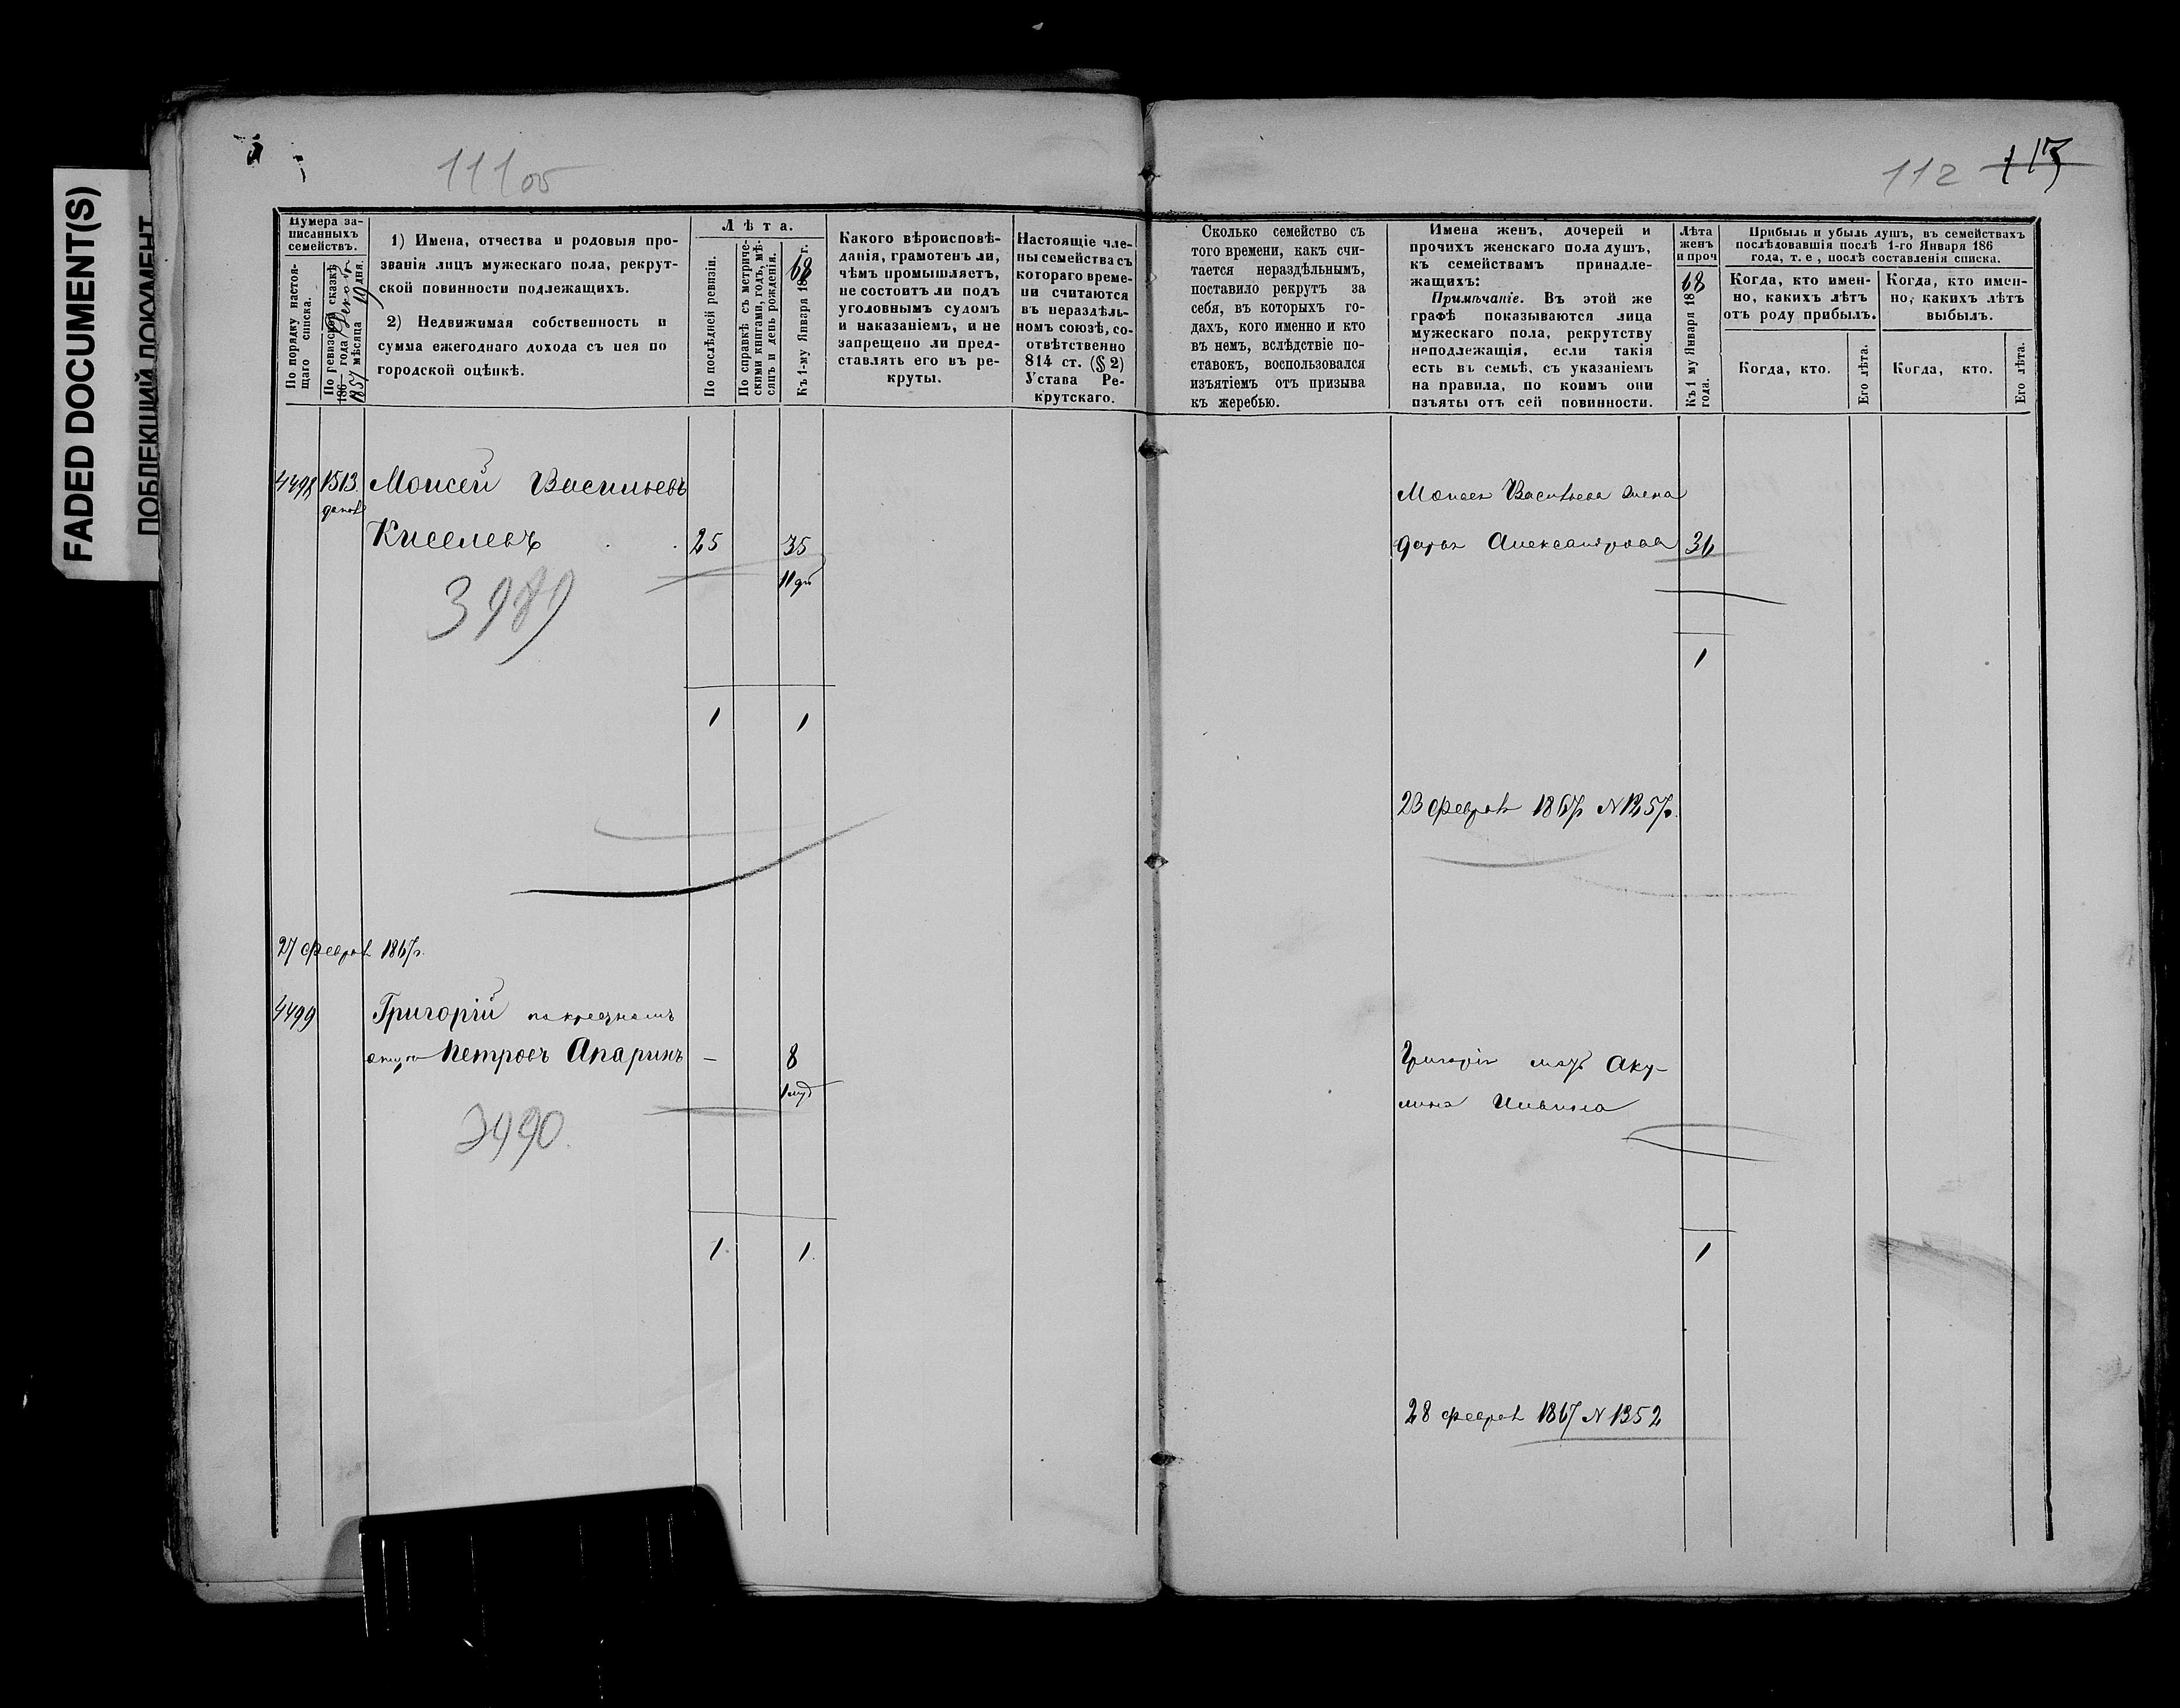 FADED DOCUMENT(S)
ПОБЛЕКШИЙ ДОКУМЕНТ
111 об
112
113
Нумера за-
писанныхъ
семействъ.
По порядку настоя-
щаго списка.
По ревизской сказкѣ
186 года
1857 мѣсяца 19 дня.
1) Имена, отчества и родовыя про-
званія лицъ мужескаго пола, рекрут-
ской повинности подлежащихъ.
2) Недвижимая собственность и
сумма ежегоднаго дохода съ нея по
городской оцѣнкѣ.
Лѣта.
По послѣдней ревизіи.
По справкѣ съ метриче-
скими книгами, годъ, мѣ-
сяцъ и день рожденія.
Къ 1-му Января 1868 г.
Какого вѣроисповѣ-
данія, грамотенъ ли,
чѣмъ промышляетъ,
не состоитъ ли подъ
уголовнымъ судомъ
и наказаніемъ, и не
запрещено ли пред-
ставлять его въ ре-
круты.
Настоящіе чле-
ны семейства съ
котораго време-
ни считаются
въ нераздѣль-
номъ союзѣ, со-
отвѣтственно
814 ст. (§ 2)
Устава Ре-
крутскаго.
Сколько семейство съ
того времени, какъ счи-
тается нераздѣльнымъ,
поставило рекрутъ за
себя, въ которыхъ го-
дахъ, кого именно и кто
въ немъ, вслѣдствіе по-
ставокъ, воспользовался
изъятіемъ отъ призыва
къ жеребью.
Имена женъ, дочерей и
прочихъ женскаго пола душъ,
къ семействамъ принадле-
жащихъ:
Примѣчаніе. Въ этой же
графѣ показываются лица
мужескаго пола, рекрутству
неподлежащія, если такія
есть въ семьѣ, съ указаніемъ
на правила, по коимъ они
изъяты отъ сей повинности.
Лѣта
женъ
и проч
Къ 1 му Января 1868
года.
Прибыль и убыль душъ, въ семействахъ
послѣдовавшія послѣ 1-го Января 186
года, т. е, послѣ составленія списка.
Когда, кто имен-
но, какихъ лѣтъ
отъ роду прибылъ.
Когда, кто имен-
но, какихъ лѣтъ
выбылъ.
Когда, кто.
Его лѣта.
Когда, кто.
Его лѣта.
4498 1513 Моисей Васильевъ
Киселевъ 25 35
3989
1 1
Моисея Васильева жена
Дарья Александрова 31
1
23 Февраля 1867
27 Февраля 1867г.
4499 Григорій по крестному
отцу Петровъ Апаринъ — 8
3990
1 1
Григорія мать Аку-
лина
1
28 Февраля 1867 N 1352